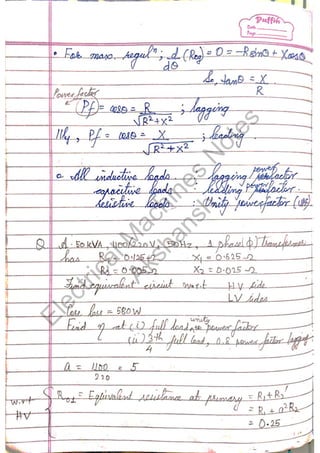 Puffin
Date
Page
• For max. regulⁿ; d/dθ (Reg) = 0 = -R sinθ + X cosθ
So, tanθ = X/R
Power factor
(Pf) = cosθ = R/√R²+X² ; lagging
IIIly, Pf = cosθ = X/√R²+X² ; leading.
All inductive loads : lagging power factor
capacitive loads : leading power factor.
resistive loads : Unity power factor
Q. A 50 kVA, 1100/220V, 50Hz, 1 phase(φ) Transformer
has R₁ = 0.125 Ω X₁ = 0.625 Ω
R₂ = 0.005 Ω X₂ = 0.025 Ω
Find equivalent circuit w.r.t HV side
LV sides
loss = 580W
Find η at (i) full load, unity power factor
(ii) 3/4 th full load, 0.8 power factor lagging
a = 1100/220 = 5
w.r.t HV
R₀₁ = Equivalent resistance at primary = R₁ + R₂'
= R₁ + a²R₂
= 0.25
Electrical Machines Notes